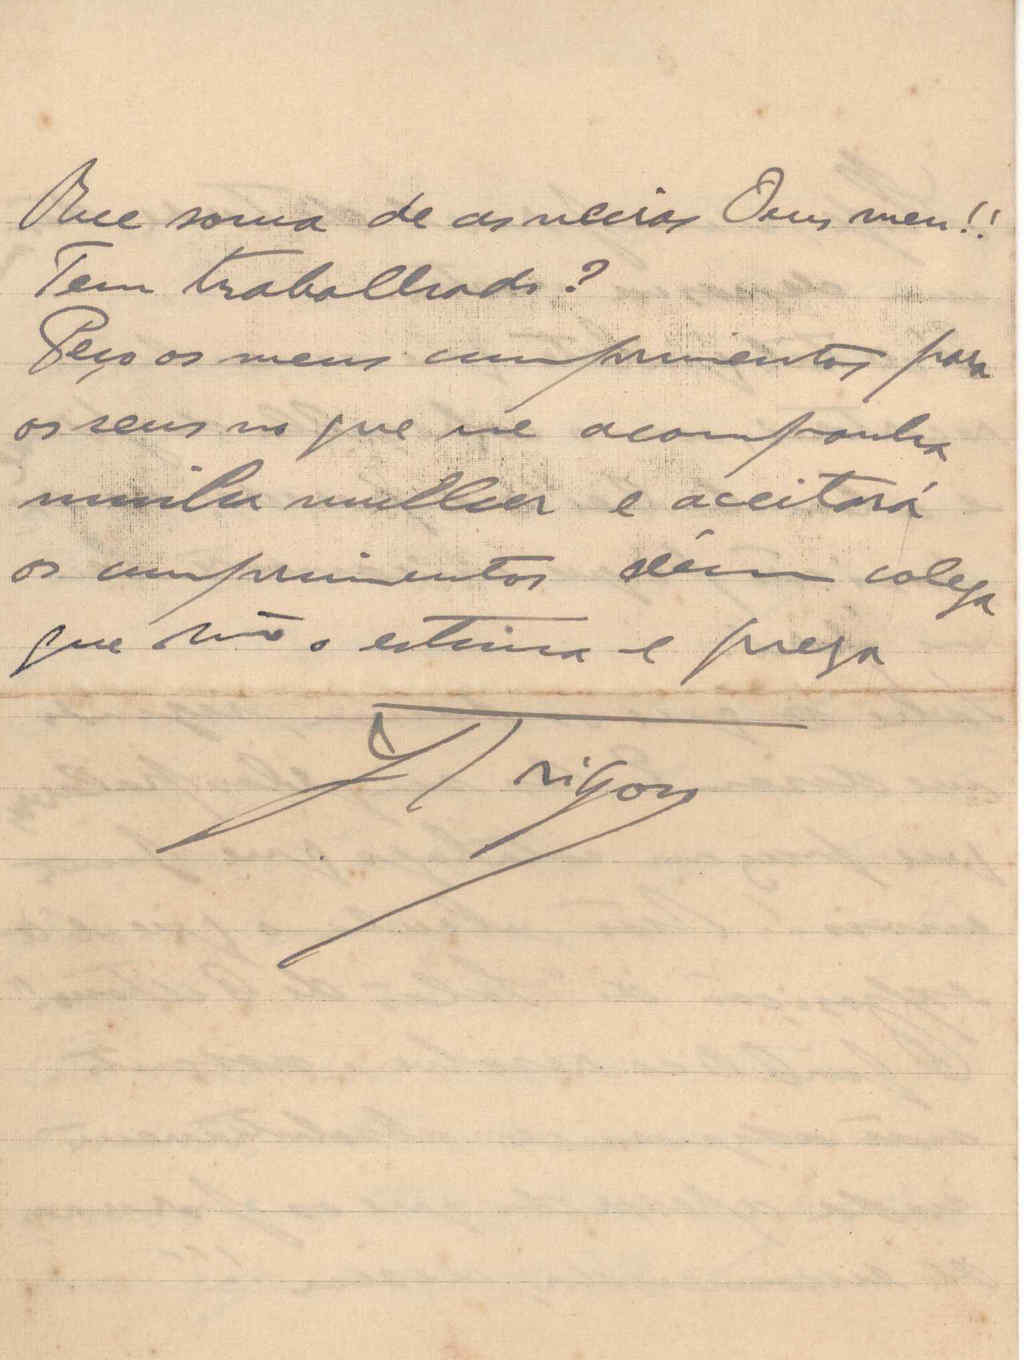 Que soma de asneiras Deus meu!!
Tem trabalhado?
Peço os meus cumprimentos para
os seus no que me acompanha
minha mulher e aceitará
os cumprimentos colega
que o estima e preza
Trigoso